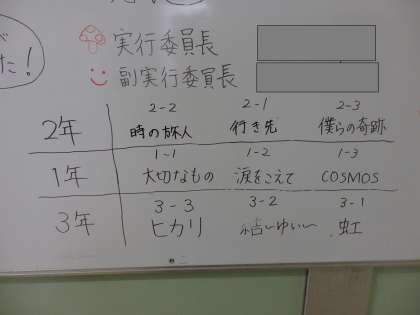 た!
実行委員長
副実行委員長
2-2 2-1 2-3
2年 時の旅人 行き先 僕らの奇跡
1-1 1-2 1-3
1年 大切なもの 涙をこえて COSMOS
3-3 3-2 3-1
3年 ヒカリ 結〜ゆい〜 虹